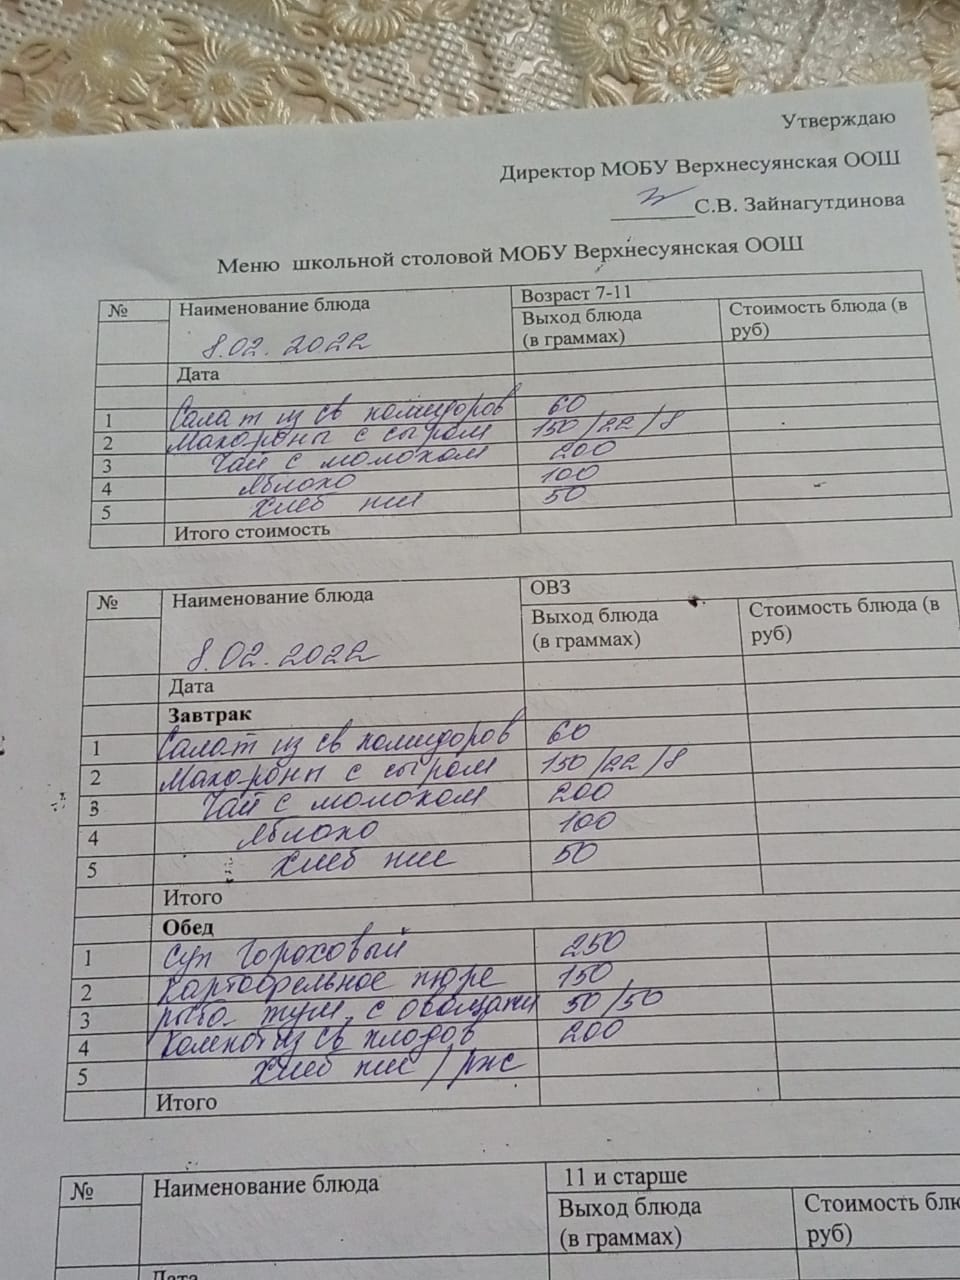 Утверждаю
Директор МОБУ Верхнесуянская ООШ
С.В. Зайнагутдинова
Меню школьной столовой МОБУ Верхнесуянская ООШ
№ Наименование блюда Возраст 7-11
Выход блюда (в граммах) Стоимость блюда (в руб)
8.02.2022
Дата
1 Салат из св помидоров 60
2 Макароны с сыром 150/22/8
3 Чай с молоком 200
4 Яблоко 100
5 Хлеб пш 50
Итого стоимость
№ Наименование блюда ОВЗ
Выход блюда (в граммах) Стоимость блюда (в руб)
8.02.2022
Дата
Завтрак
1 Салат из св помидоров 60
2 Макароны с сыром 150/22/8
3 Чай с молоком 200
4 Яблоко 100
5 Хлеб пш 50
Итого
Обед
1 Суп гороховый 250
2 Картофельное пюре 150
3 рыба туш. с овощами 50/50
4 Компот из св плодов 200
5 Хлеб пш / рж
Итого
№ Наименование блюда 11 и старше
Выход блюда (в граммах) Стоимость (в руб)
Дата